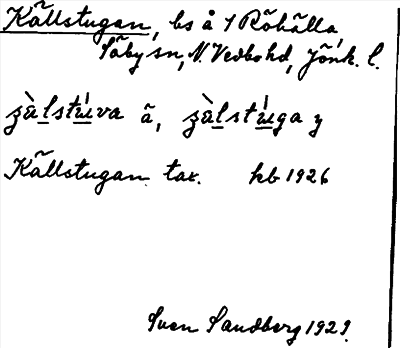 Källstugan, bs å 1 Röhälla,
Säby sn, N. Vedbohd, Jönk. l.
Källstugan tax. hb 1926
Sven Sandberg 1929.